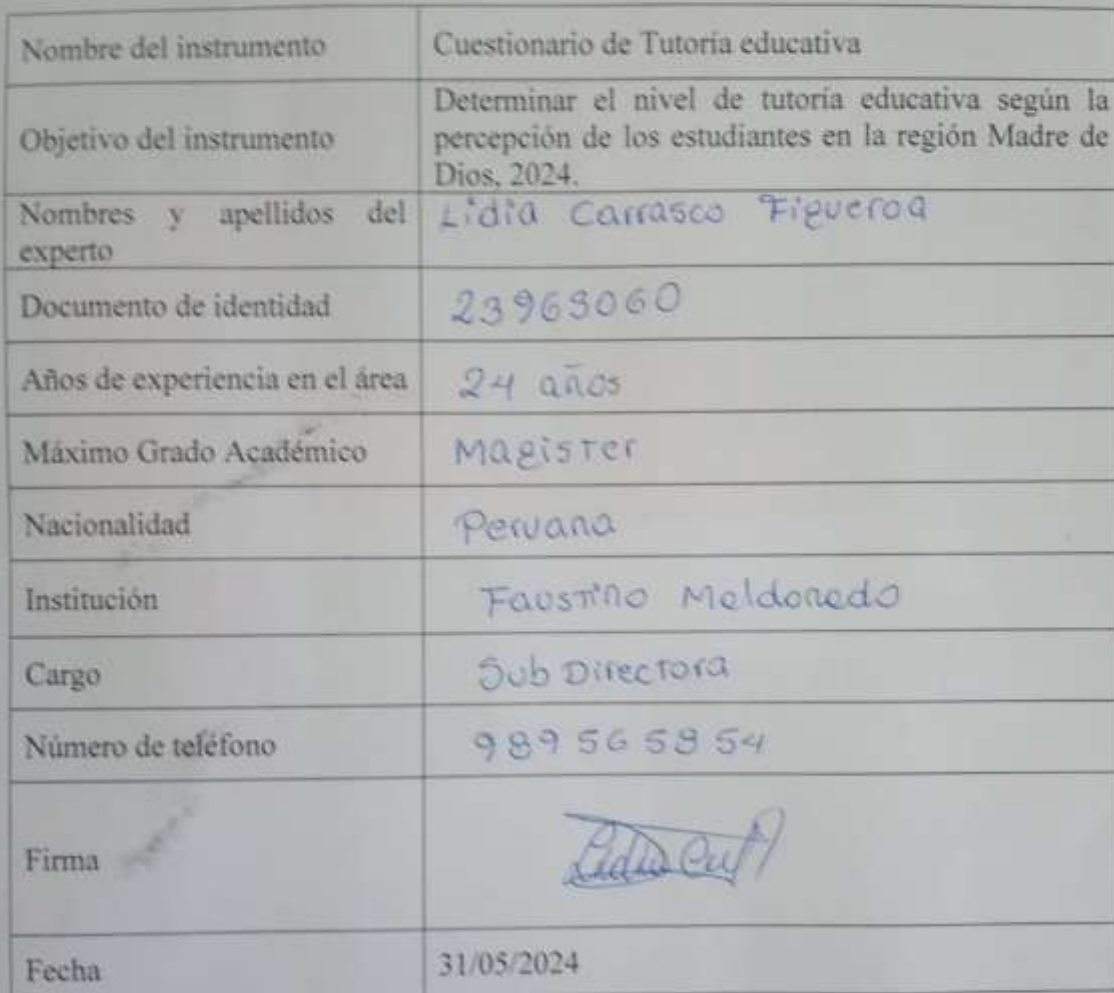 Nombre del instrumento
Cuestionario de Tutoría educativa
Objetivo del instrumento
Determinar el nivel de tutoría educativa según la
percepción de los estudiantes en la región Madre de
Dios, 2024.
Nombres y apellidos del
experto
Lidia Carrasco Figueroa
Documento de identidad
Años de experiencia en el área
24 años
Máximo Grado Académico
Magister
Nacionalidad
Peruana
Institución
Faustino Maldonado
Cargo
Sub Directora
Número de teléfono
Firma
Fecha
31/05/2024